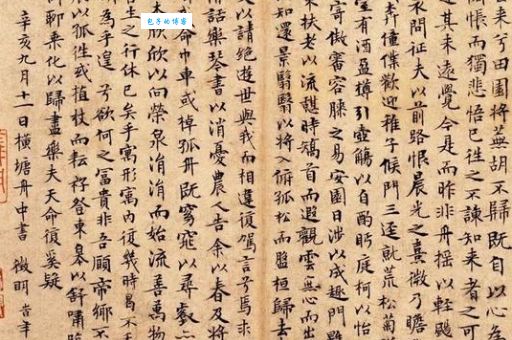 包子的博客
來兮田園將蕪胡不歸既自以心為
惆悵而獨悲悟已往之不諫知來者之可
途其未遠覺今是而昨非舟摇以輕颺
衣問征夫以前路恨晨光之熹微乃瞻
奔僮僕歡迎稚子候門三逕就荒松菊
室有酒盈樽引壺觴以自酌眄庭柯以怡
寄傲審容膝之易安園日涉以成趣門
扶老以流憩時矯首而遐觀雲無心而出
知還景翳翳以將入撫孤松而盤桓歸去
交以請絕遊世與我而相違復駕言兮焉求
情話樂琴書以消憂農人告余以春及將
或命巾車或棹孤舟既窈窕以尋壑
木欣欣以向榮泉涓涓而始流善萬物
生之行休已矣乎寓形宇內復幾時曷不
為乎遑兮欲何之富貴非吾願帝鄉不
以孤往或植杖而耘耔登東皋以舒嘯臨
聊乘化以歸盡樂夫天命復奚疑
辛亥九月十一日橫塘舟中書 徵明